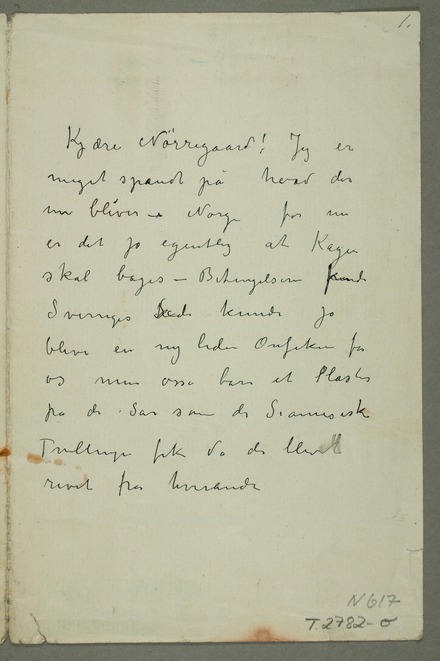 1.
Kjære Nörregaard! Jeg er
meget spændt på hvad der
nu bliver Norge for nu
er det jo egentlig at Kagen
skal bages – Betingelsern
Sveriges Side kunde jo
blive en ny liden Orefiken for
os men osså bare et Plaster
på de Sår som de Siamesiske
Tvillinger fik da de blev
revet fra hverandre
N 617
T. 2782-o